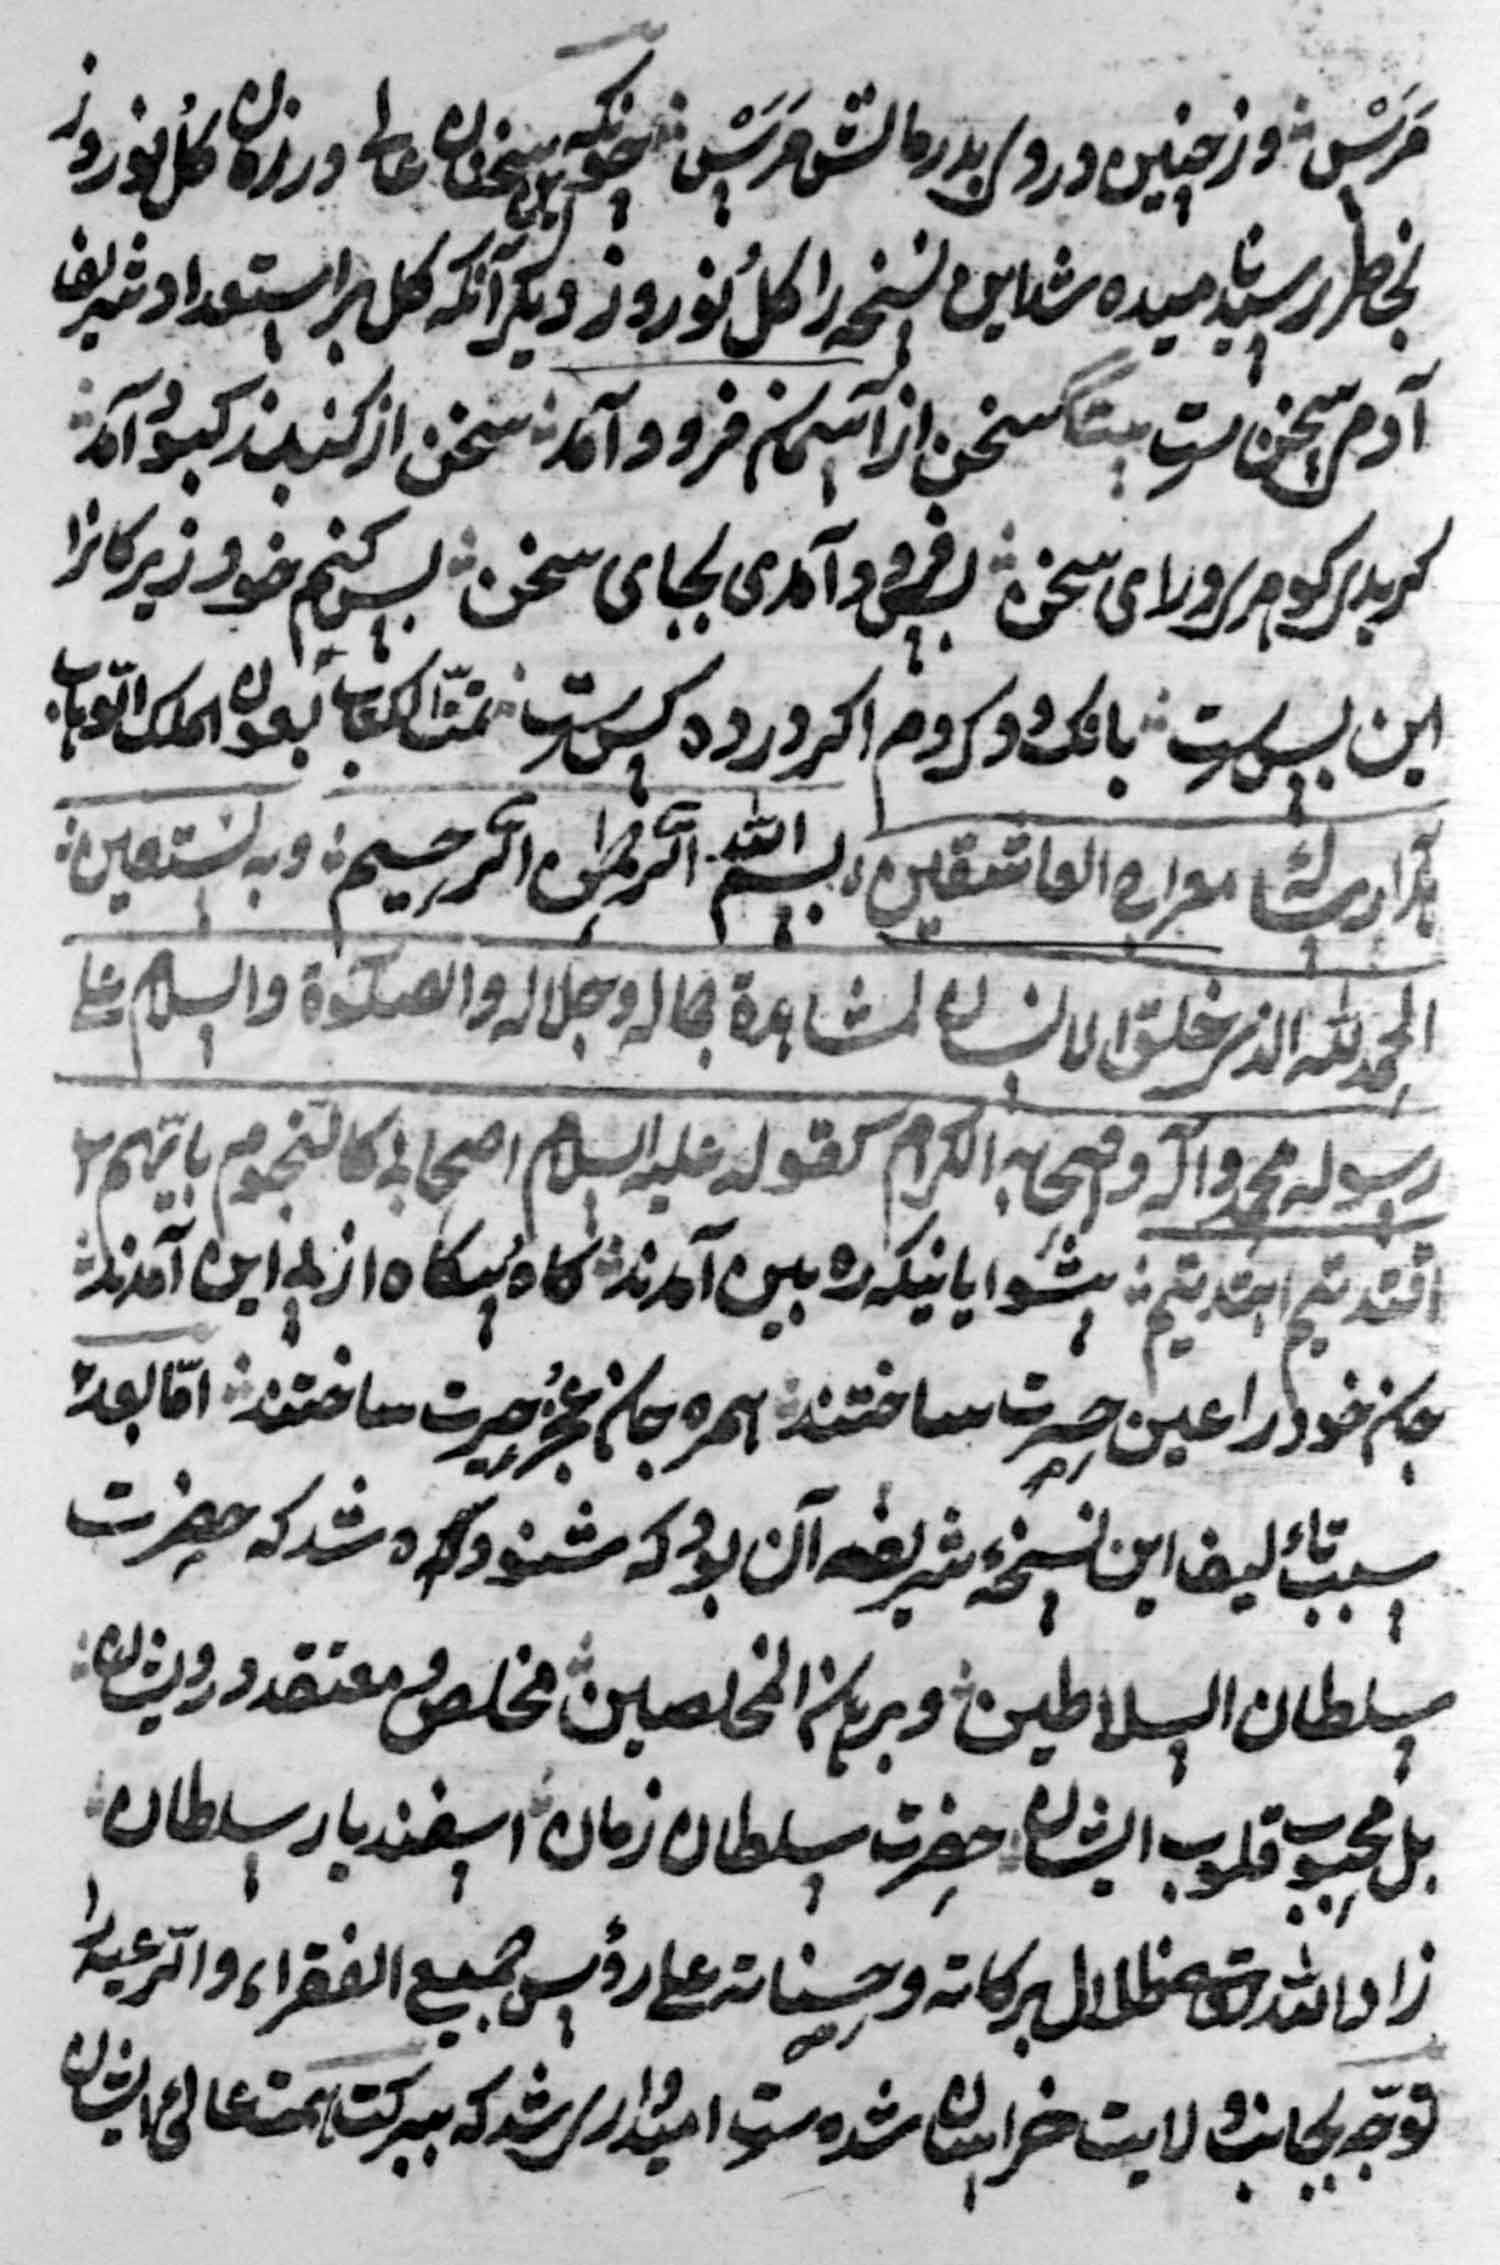 مَرَسْ وز چنین درو ی بدرمانش مَرَسْ چونکه این سخنان عالی در زمان گل نوروز
بخاطر رسید نامیده شد این نسخه را گل نوروز دیگر آنکه گل بر استعداد شریف
آدمی سخن ست بیت سخن از آسمان فرود آمد سخن از گنبد کبود آمد
گر بدی گوهری ورای سخن فرود آمدی بجای سخن بس کنم خود زیرکانرا
این بس ست بانک دو کردم اگر در ده کس ست تمّت الکتاب بعون الملک الوهاب
هذا رسالهٔ معراج العاشقین بسم الله الرحمن الرحیم وبه نستعین
الحمد لله الذی خلق الانسان لمشاهدة جماله وجلاله والصلوة والسلام علی
رسوله محمد وآله وصحابه الکرام کقوله علیه السلام اصحابی کالنجوم بایّهم
اقتدیتم اهتدیتم پیشوایانیکه ره بین آمدند گاه بیگاه از پی این آمدند
جان خود را عین حسرت ساختند همره جان عجز حیرت ساختند امّا بعد
سبب تألیف این نسخهٔ شریفه آن بود که شنوده شد که حضرت
سلطان السلاطین وبرهان المخلصین مخلص و معتقد درویشان
بل محبوب قلوب ایشان حضرت سلطان زمان اسفندیار سلطان
زاد الله ظلال برکاته وحسناته علی رؤس جمیع الفقراء والرعیة را
توجّه بجانب ولایت خراسان شده ست امیدواری شد که ببرکت همت عالئ ایشان